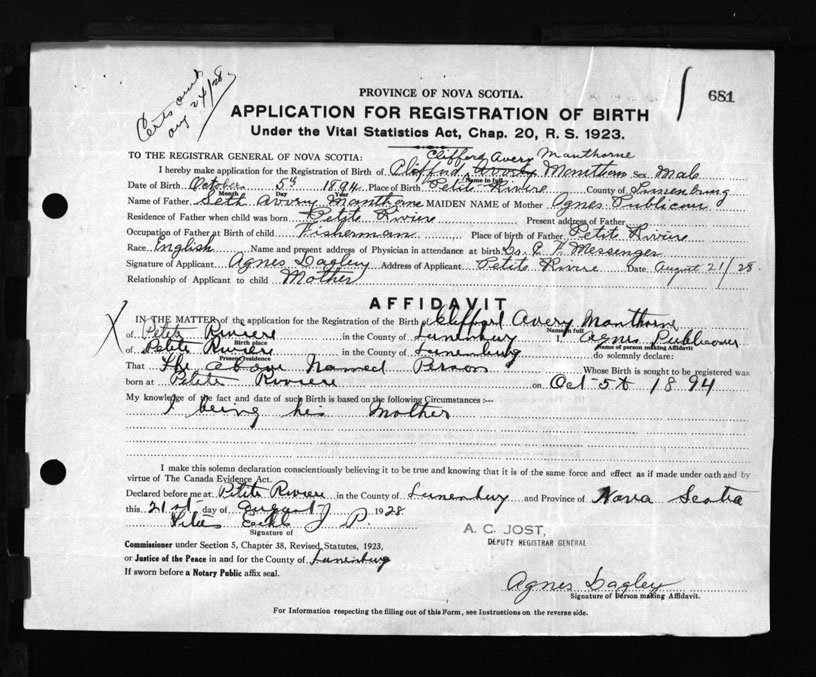 Certs aunt
Aug 24/28
681
PROVINCE OF NOVA SCOTIA.
APPLICATION FOR REGISTRATION OF BIRTH
Under the Vital Statistics Act, Chap. 20, R. S. 1923.
Clifford Avery Manthorne
TO THE REGISTRAR GENERAL OF NOVA SCOTIA:
I hereby make application for the Registration of Birth of Clifford Manthorn Sex Male
Name in full
Date of Birth October 5th 1894 Place of Birth Petite Riviere County of Lunenburg
Month Day Year
Name of Father Seth Avery Manthorne MAIDEN NAME of Mother Agnes Publicover
Residence of Father when child was born Petite Riviere Present address of Father
Occupation of Father at Birth of child Fisherman Place of birth of Father Petit Rivire
Race English Name and present address of Physician in attendance at birth Dr. E Messenger
Signature of Applicant Agnes Dagley Address of Applicant Petite Rivire Date August 21/28.
Relationship of Applicant to child Mother
AFFIDAVIT
X IN THE MATTER of the application for the Registration of the Birth of Clifford Avery Manthorne
Name in full
of Petite Riviere in the County of Lunenburg I, Agnes Publicover
Birth place Name of person making Affidavit
of Petite Riviere in the County of Lunenburg do solemnly declare:
Present residence
That the above Named Person Whose Birth is sought to be registered was
born at Petite Riviere on Oct 5th 1894
My knowledge of the fact and date of such Birth is based on the following Circumstances :—
I being his Mother
I make this solemn declaration conscientiously believing it to be true and knowing that it is of the same force and effect as if made under oath and by
virtue of The Canada Evidence Act.
Declared before me at Petite Riviere in the County of Lunenburg and Province of Nova Scotia
this 21st day of August 1928
J P.
Signature of
A. C. JOST,
DEPUTY REGISTRAR GENERAL
Commissioner under Section 5, Chapter 38, Revised Statutes, 1923,
or Justice of the Peace in and for the County of Lunenburg
If sworn before a Notary Public affix seal.
Agnes Dagley
Signature of Person making Affidavit.
For Information respecting the filling out of this Form, see Instructions on the reverse side.